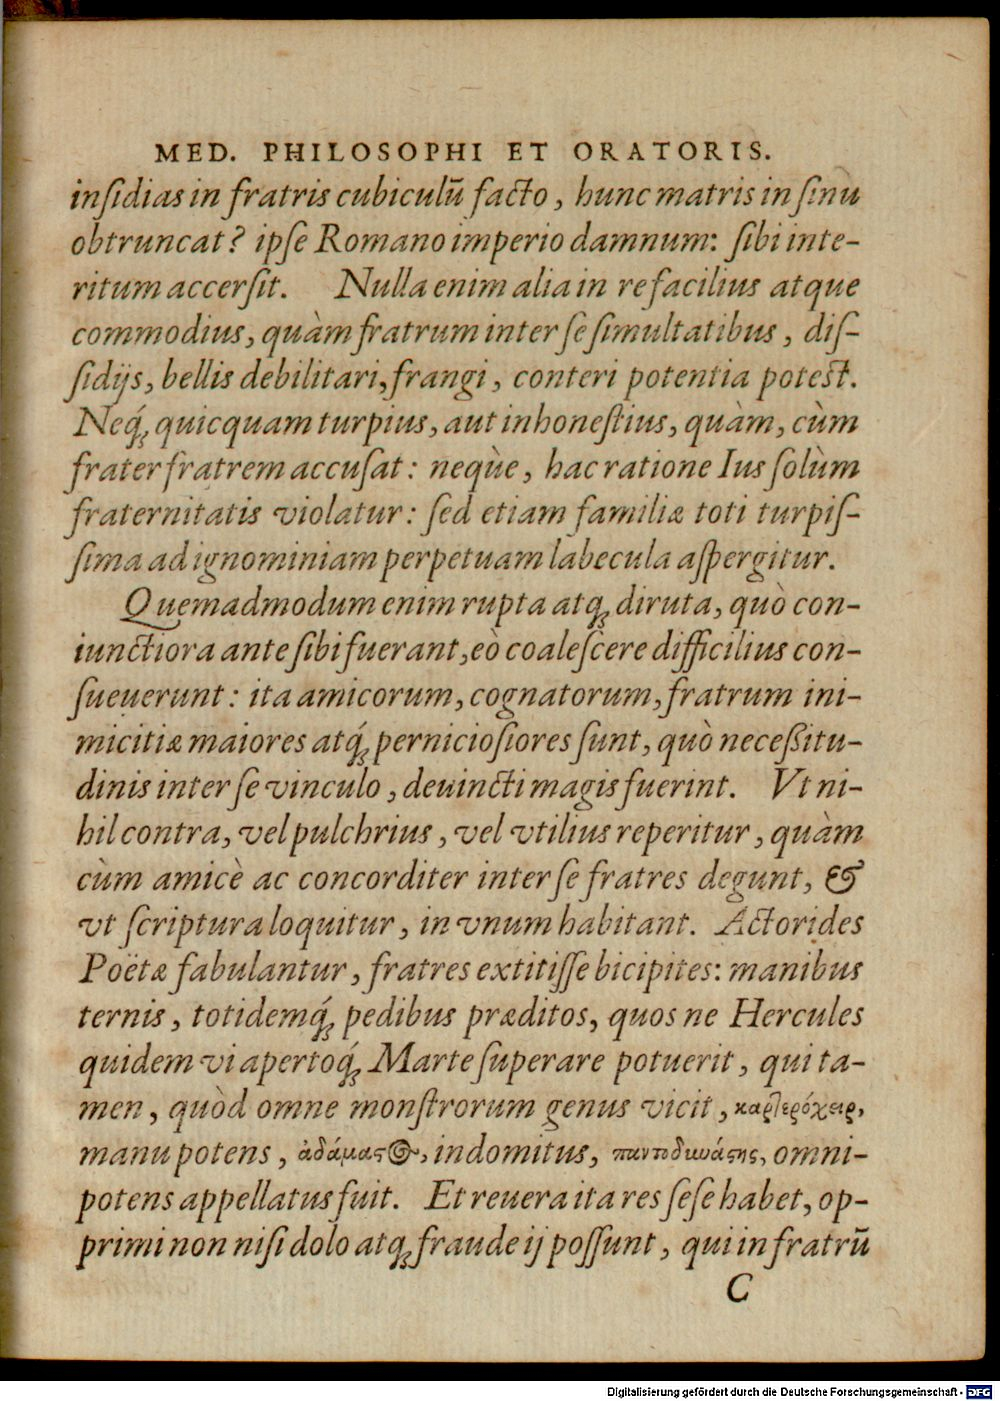 MED. PHILOSOPHI ET ORATORIS.
insidias in fratris cubiculũ facto, hunc matris in sinu
obtruncat? ipse Romano imperio damnum: sibi inte-
ritum accersit. Nulla enim alia in re facilius atque
commodius, quàm fratrum inter se simultatibus, dis-
sidijs, bellis debilitari, frangi, conteri potentia potest.
Neq́ꝫ quicquam turpius, aut inhonestius, quàm, cùm
frater fratrem accusat: neqùe, hac ratione Ius solùm
fraternitatis violatur: sed etiam familiæ toti turpis-
sima ad ignominiam perpetuam labecula aspergitur.
Quemadmodum enim rupta atqꝫ diruta, quò con-
iunctiora ante sibi fuerant, eò coalescere difficilius con-
sueuerunt: ita amicorum, cognatorum, fratrum ini-
micitiæ maiores atq́ꝫ perniciosiores sunt, quò neceßitu-
dinis inter se vinculo, deuincti magis fuerint. Vt ni-
hil contra, vel pulchrius, vel vtilius reperitur, quàm
cùm amicè ac concorditer inter se fratres degunt, &
vt scriptura loquitur, in vnum habitant. Actorides
Poëtæ fabulantur, fratres extitisse bicipites: manibus
ternis, totidemq́ꝫ pedibus præditos, quos ne Hercules
quidem vi apertoq́ꝫ Marte superare potuerit, qui ta-
men, quòd omne monstrorum genus vicit, καρτερόχειρ,
manu potens, ἀδάμαστος, indomitus, παντοδυνάστης, omni-
potens appellatus fuit. Et reuera ita res sese habet, op-
primi non nisi dolo atqꝫ fraude ij possunt, qui in fratrũ
C
Digitalisierung gefördert durch die Deutsche Forschungsgemeinschaft - DFG